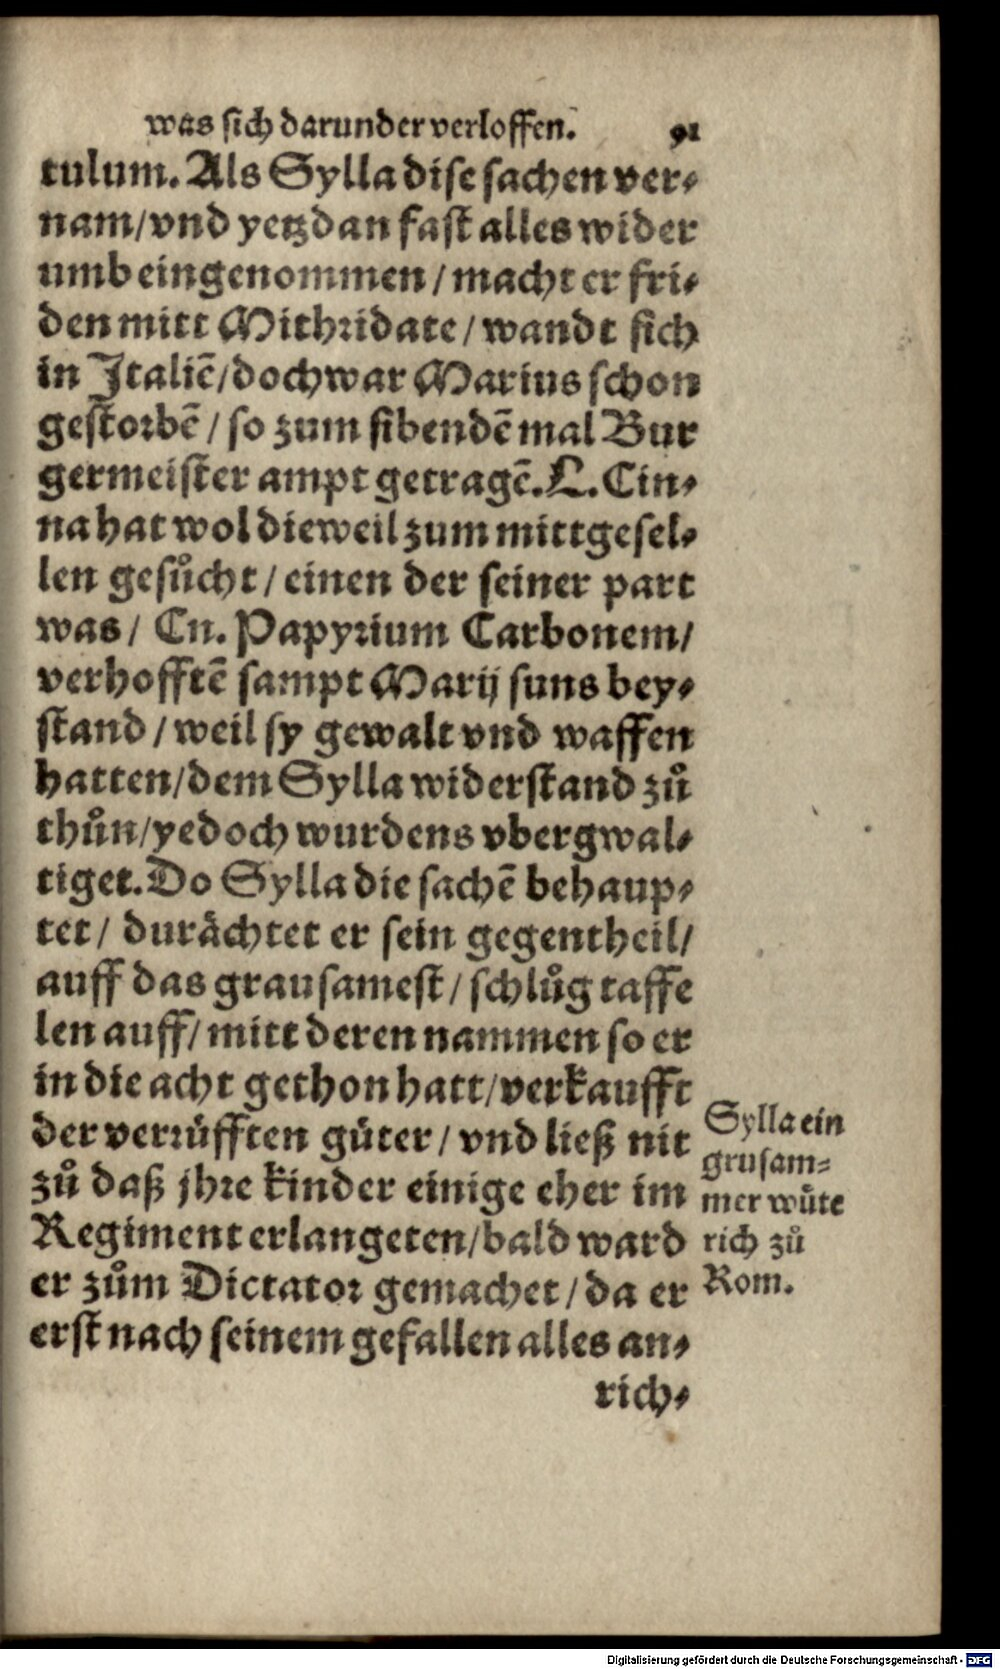 was sich darunder verloffen. 91
tulum. Als Sylla dise sachen ver⸗
nam/vnd yetz dan fast alles wider
umb eingenommen / macht er fri⸗
den mitt Mithridate / wandt sich
in Italiē/doch war Marius schon
gestorbē / so zum sibendē mal Bur
germeister ampt getragē. L. Cin⸗
na hat wol dieweil zum mittgesel⸗
len gesůcht / einen der seiner part
was / Cn. Papyrium Carbonem/
verhofftē sampt Marij suns bey⸗
stand / weil sy gewalt vnd waffen
hatten/dem Sylla widerstand zů
thůn/yedoch wurdens vbergwal⸗
tiget. Do Sylla die sachē behaup⸗
tet / durächtet er sein gegentheil/
auff das grausamest / schlůg taffe
len auff/ mitt deren nammen so er
in die acht gethon hatt/verkaufft
der verrüfften güter / vnd ließ nit
zů daß jhre kinder einige eher im
Regiment erlangeten/bald ward
er zům Dictator gemachet / da er
erst nach seinem gefallen alles an⸗
rich⸗
Sylla ein
grusam⸗
mer wůte
rich zů
Rom.
Digitalisierung gefördert durch die Deutsche Forschungsgemeinschaft - DFG